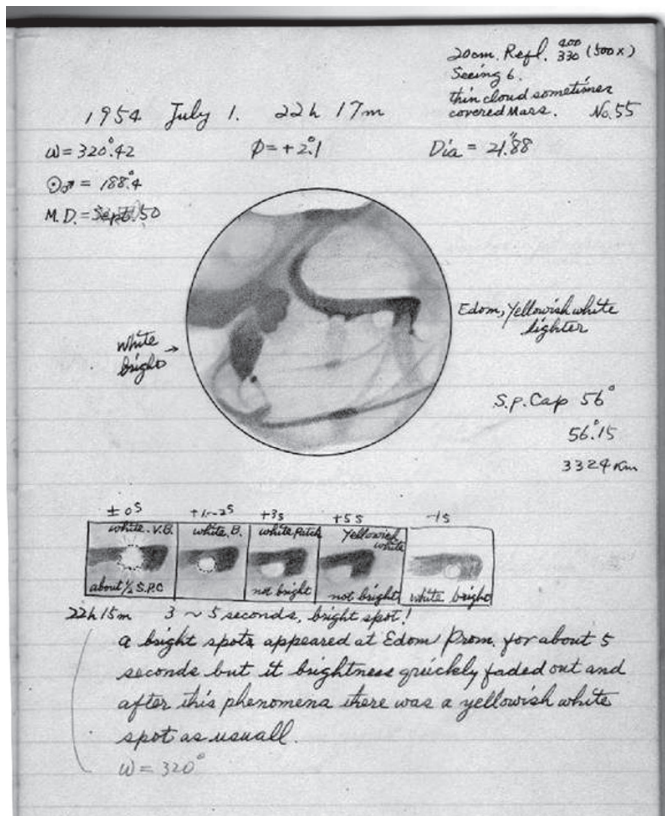 20cm. Refl. 400 330 (500x)
Seeing 6.
thin cloud sometimes
covered Mars. No. 55
1954 July 1. 22h 17m
ω = 320°.42 φ = +2°.1 Dia = 21".88
☉♂ = 188°.4
M.D. = 50
Edom, Yellowish white
lighter
White
bright →
S.P. Cap 56°
56°.15
3324 Km
±0s +1~2s +3s +5s -1s
white. V.B. white, B. white Patch Yellowish
white
about ½ S.P.C not bright not bright white bright
22h 15m 3 ~ 5 seconds, bright spot!
A bright spots appeared at Edom Prom. for about 5
seconds but it brightness quickly faded out and
after this phenomena there was a yellowish white
spot as usuall.
ω = 320°